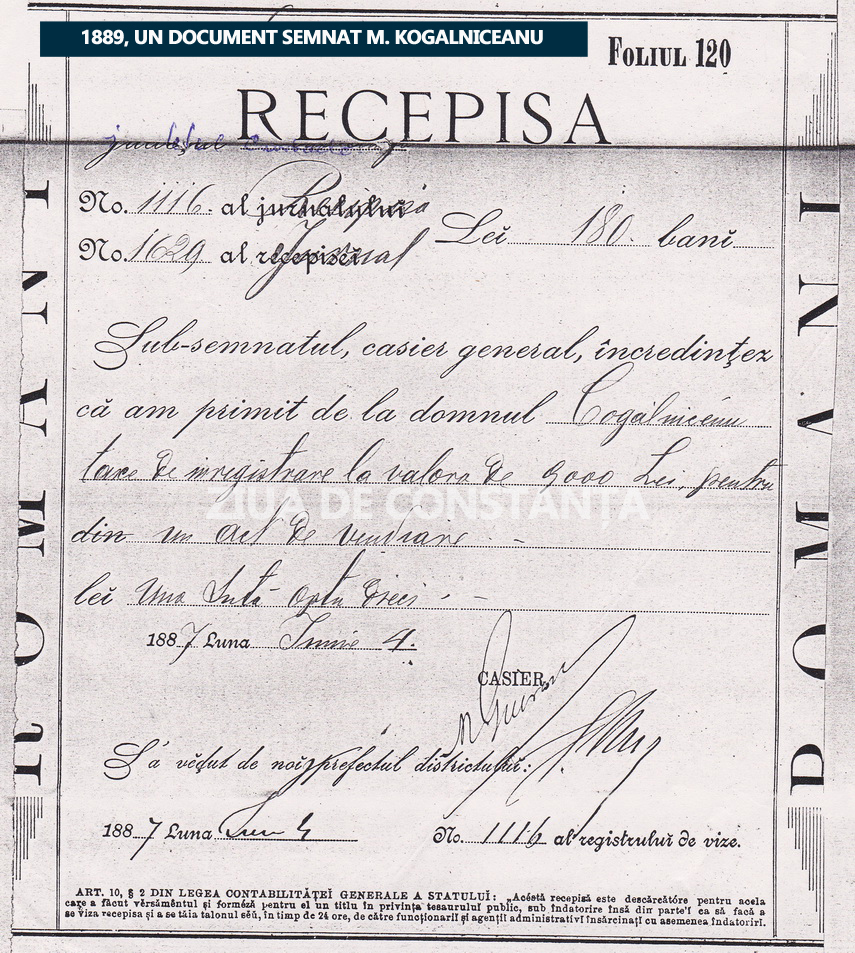 1889, UN DOCUMENT SEMNAT M. KOGALNICEANU
FOLIUL 120
RECEPISA
județul
No. 1116 al jurnalului
No. 1629 al recepiseĭ Jurnal
Leĭ 180. banĭ
Sub-semnatul, casier general, încredințez
că am primit de la domnul Cogălniceanu
taxe de inregistrare la valora de 9000 Lei, pentru
ZIUA DE CONSTANȚA
din un act de vendare
leĭ Una Sută optu dreci
1887 Luna Iunie 4.
CASIER,
S'a vĕḑut de noĭ prefectul districtuluĭ:
1887 Luna Iuni 4
No. 1116 al registrului de vize.
ART. 10, § 2 DIN LEGEA CONTABILITĂȚEĬ GENERALE A STATULUĬ: „Acéstă recepisă este descărcătóre pentru acela
care a făcut vĕrsămĕntul și forméză pentru el un titlu în privința tesaurului public, sub îndatorire însă din parte'ĭ ca să facă a
se viza recepisa și a se tăia talonul sĕŭ, în timp de 24 ore, de către funcționariĭ și agențiĭ administrativĭ însărcinațĭ cu asemenea îndatorirĭ.
ROMANI
ROMANI